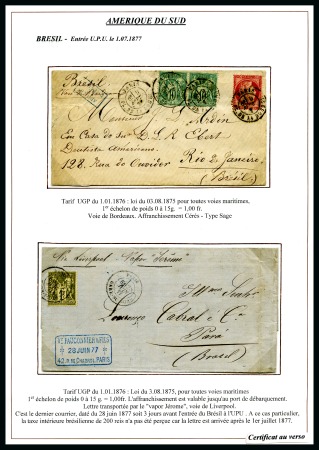 AMERIQUE DU SUD
BRESIL - Entrée U.P.U. le 1.07.1877
Brésil
Monsieur S. Ardin
En Casa de su D. R. Ebert
Dentista Americano
128. Rua do Ouvidor Rio de Janeiro
(Brésil)
Tarif UGP du 1.01.1876 : loi du 03.08.1875 pour toutes voies maritimes,
1er échelon de poids 0 à 15g. = 1,00 fr.
Voie de Bordeaux. Affranchissement Cérès - Type Sage
Lourenço Cabral & Cie
Pará
(Brésil)
Vr FAUCONNIER FILS
28 JUIN 77
PARIS
Tarif UGP du 1.01.1876 : Loi du 3.08.1875, pour toutes voies maritimes
1er échelon de poids 0 à 15 g. = 1,00fr. L'affranchissement est valable jusqu'au port de débarquement.
Lettre transportée par le "vapor Jérome", voie de Liverpool.
C'est le dernier courrier, daté du 28 juin 1877 soit 3 jours avant l'entrée du Brésil à l'UPU . A ce cas particulier,
la taxe intérieure brésilienne de 200 reis n'a pas été perçue car la lettre est arrivée après le 1er juillet 1877.
Certificat au verso